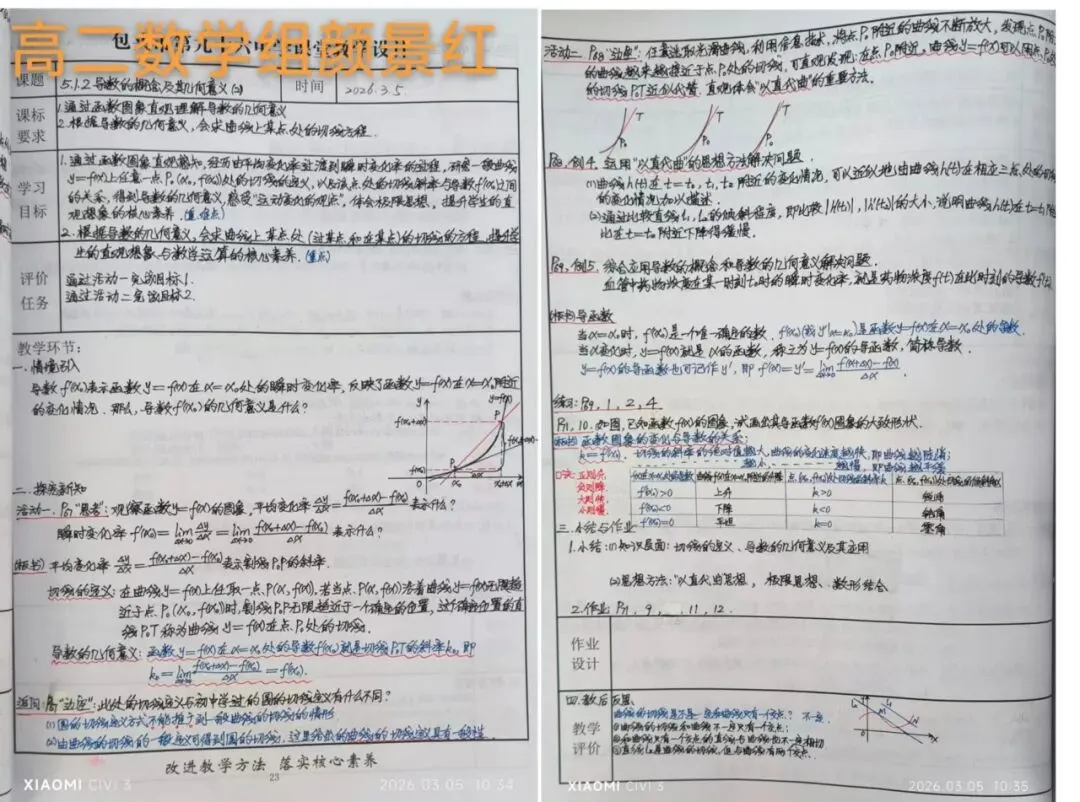 高二数学组颜景红
课题
5.1.2导数的概念及其几何意义(2)
时间
2026.3.5
课标
要求
1.通过函数图象直观理解导数的几何意义
2.根据导数的几何意义,会求曲线上某点处的切线方程.
学习
目标
1.通过函数图象直观感知,经历由平均变化率过渡到瞬时变化率的过程,
y=f(x)上任意一点P₀(x₀,f(x₀))处的切线的定义,以及该点处的切线斜率与导数f'(x₀)之间
的关系,得到导数的几何意义,感受"运动变化的观点",体会极限思想,提升学生的直
观想象的核心素养.(重、难点)
2.根据导数的几何意义,会求曲线上某点处(过某点和在某点)的切线的方程,提升学
生的直观想象与数学运算的核心素养.(重点)
评价
任务
通过活动一完成目标1.
通过活动二完成目标2.
教学环节:
一.情境引入
导数f'(x₀)表示函数y=f(x)在x=x₀处的瞬时变化率,反映了函数y=f(x)在x=x₀附近
的变化情况.那么,导数f'(x₀)的几何意义是什么?
二.探究新知
活动一.P67"思考":观察函数y=f(x)的图象,平均变化率Δy/Δx=(f(x₀+Δx)-f(x₀))/Δx表示什么?
瞬时变化率f'(x₀)=lim Δx→0 Δy/Δx=lim Δx→0 (f(x₀+Δx)-f(x₀))/Δx表示什么?
(板书)平均变化率Δy/Δx=(f(x₀+Δx)-f(x₀))/Δx表示割线P₀P的斜率.
切线的定义:在曲线y=f(x)上任取一点P(x,f(x)),若当点P(x,f(x))沿着曲线y=f(x)无限趋
近于点P₀(x₀,f(x₀))时,割线P₀P无限趋近于一个确定的位置,这个确定位置的直
线P₀T称为曲线y=f(x)在点P₀处的切线.
导数的几何意义:函数y=f(x)在x=x₀处的导数f'(x₀)就是切线P₀T的斜率k₀,即
k₀=lim Δx→0 (f(x₀+Δx)-f(x₀))/Δx=f'(x₀).
追问:"边空":此处的切线定义与初中学过的圆的切线定义有什么不同?
(1)圆的切线定义方式不能推广到一般曲线的切线的情形.
(2)由曲线的切线的一般定义可得到圆的切线,这里给出的曲线的切线定义具有一般性.
改进教学方法 落实核心素养
23
XIAOMI CIVI 3
2026.03.05 10:34
活动二.P68"边空":任意选取光滑曲线,利用信息技术,将点P₀附近的曲线不断放大,发现点P₀附近
的曲线越来越接近于点P₀处的切线,可直观发现:在点P₀附近,曲线y=f(x)可以用点P₀处
的切线P₀T近似代替.直观体会"以直代曲"的重要方法.
T
P₀
T
P₀
T
P₀
P68,例4.运用"以直代曲"的思想方法解决问题.
(1)曲线h(t)在t=t₀,t₁,t₂附近的变化情况,可以近似地由曲线h(t)在相应三点处的切线
的变化情况加以描述.
(2)通过比较直线l₁,l₂的倾斜程度,即比较|h'(t₁)|,|h'(t₂)|的大小,说明曲线h(t)在t=t₁附近
比在t=t₂附近下降得缓慢.
P69,例5.综合应用导数的概念和导数的几何意义解决问题.
血管中药物浓度在某一时刻t₀时的瞬时变化率,就是药物浓度f(t)在此时刻的导数f'(t)
(板书)导函数
当x=x₀时,f'(x₀)是一个唯一确定的数,f'(x₀)或y'|x=x₀是函数y=f(x)在x=x₀处的导数.
当x变化时,y=f'(x)就是x的函数,称之为y=f(x)的导函数,简称导数.
y=f(x)的导函数也可记作y',即f'(x)=y'=lim Δx→0 (f(x+Δx)-f(x))/Δx.
练习:P69,1,2,4
P71,10.如图,已知函数f(x)的图象,试画出其导函数f'(x)图象的大致形状.
(板书)函数图象的变化与导数的关系:
k=f'(x₀).切线的斜率的绝对值越大,曲线的变化速度越快,即曲线越陡峭;
越小,越慢,即曲线越平缓
口诀:正则升
负则降
大则快
小则慢
f'(x₀)>0 上升 k>0 锐角
f'(x₀)<0 下降 k<0 钝角
f'(x₀)=0 平坦 k=0 零角
三.小结与作业
1.小结:(1)知识层面:切线的定义、导数的几何意义及其应用
(2)思想方法:"以直代曲思想,极限思想、数形结合
2.作业P71,9,,11,12.
作业
设计
四.教后反思
教学
评价
曲线的切线是不是一定和曲线只有一个交点?不一定.
①曲线的切线和曲线不一定只有一个交点;
②和曲线只有一个交点的直线与曲线也不一定相切
③直线l₂是曲线的切线,但与曲线有两个交点.
XIAOMI CIVI 3
2026.03.05 10:35